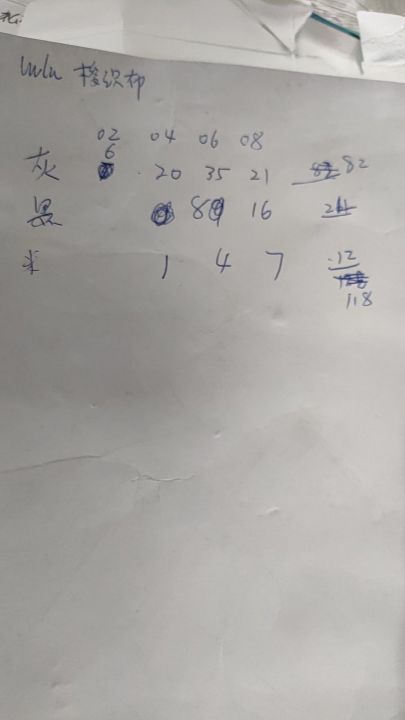 lulu 梭织布
02 04 06 08
灰 6 20 35 21 82
黑 8 16 24
米 1 4 7 12
118